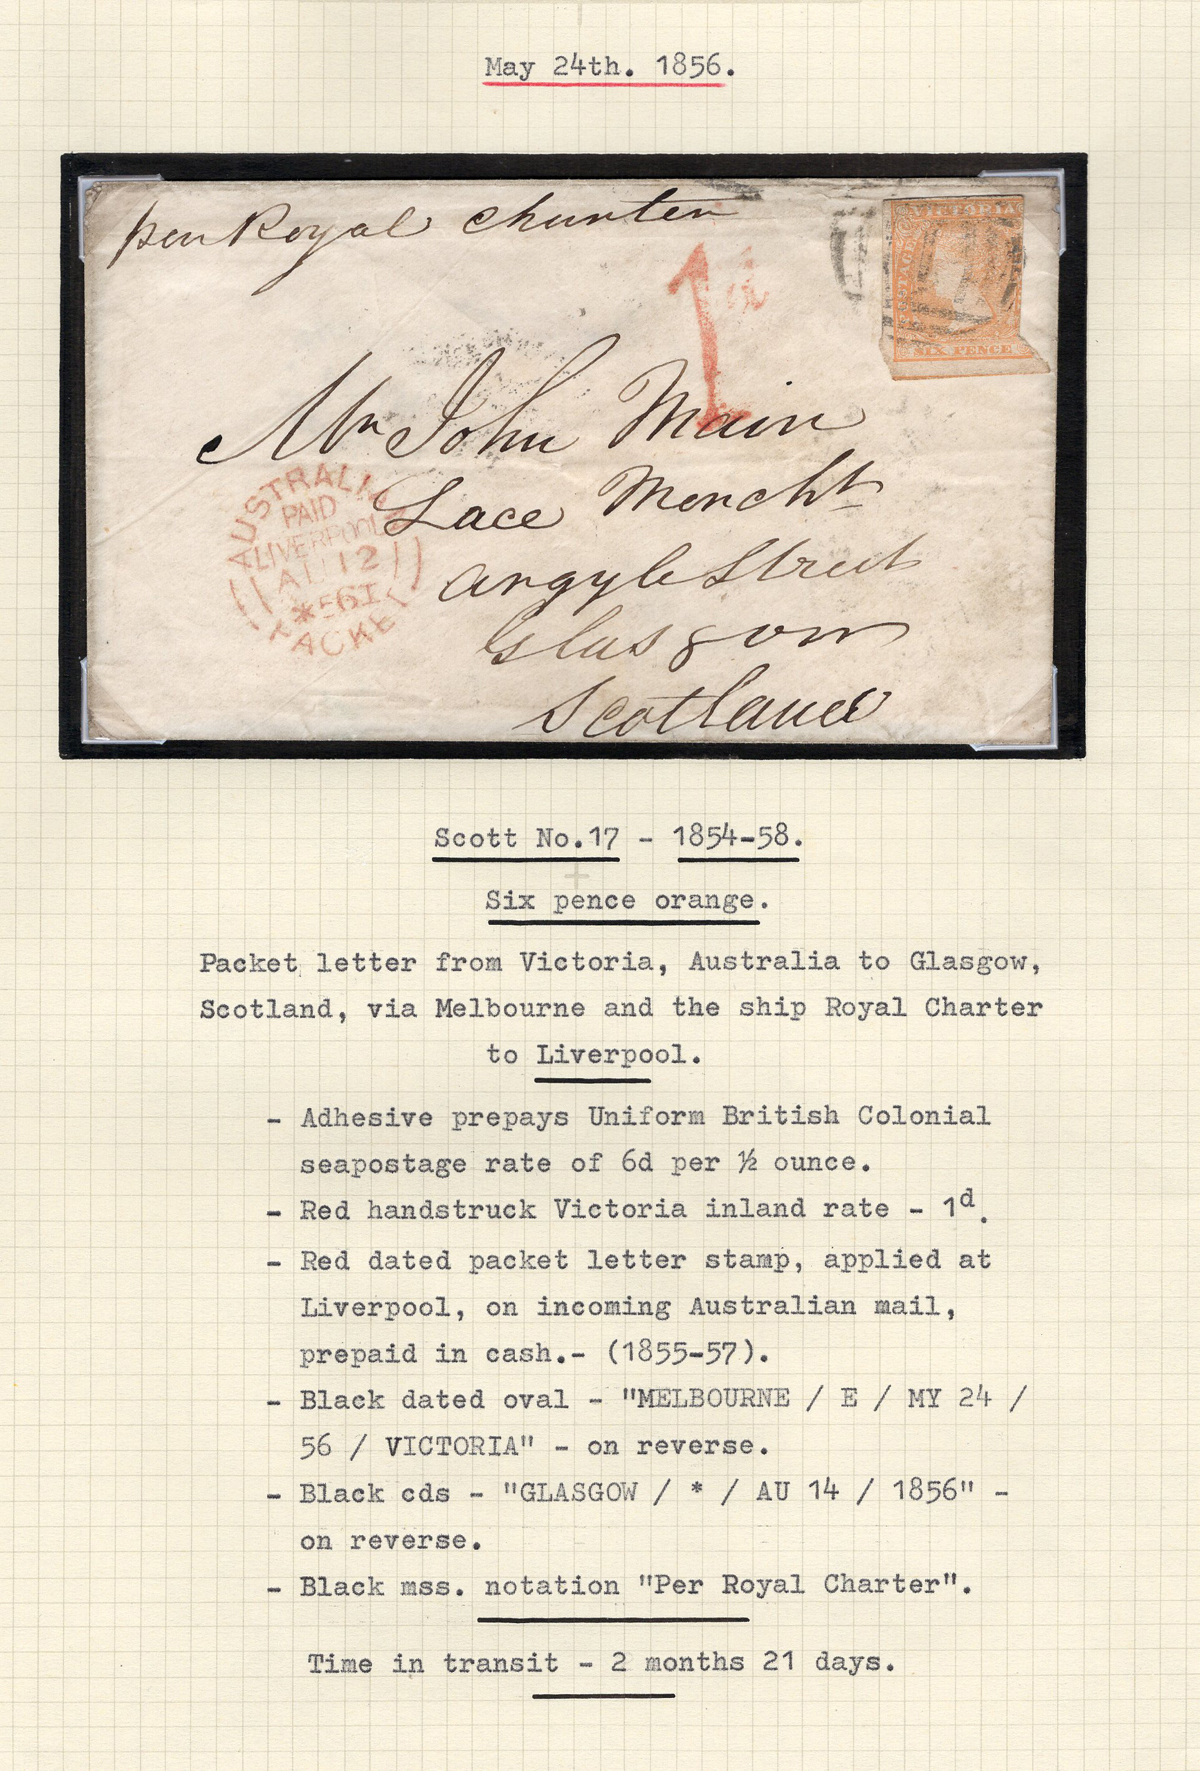 May 24th. 1856.
per Royal Charter
VICTORIA
SIX PENCE
1d
Mr John Main
Lace Mercht
Argyle Street
Glasgow
Scotland
AUSTRALIAN
PAID
LIVERPOOL
AU 12
56
PACKET
Scott No.17 - 1854-58.
Six pence orange.
Packet letter from Victoria, Australia to Glasgow,
Scotland, via Melbourne and the ship Royal Charter
to Liverpool.
- Adhesive prepays Uniform British Colonial
seapostage rate of 6d per ½ ounce.
- Red handstruck Victoria inland rate - 1d.
- Red dated packet letter stamp, applied at
Liverpool, on incoming Australian mail,
prepaid in cash.- (1855-57).
- Black dated oval - "MELBOURNE / E / MY 24 /
56 / VICTORIA" - on reverse.
- Black cds - "GLASGOW / * / AU 14 / 1856" -
on reverse.
- Black mss. notation "Per Royal Charter".
Time in transit - 2 months 21 days.